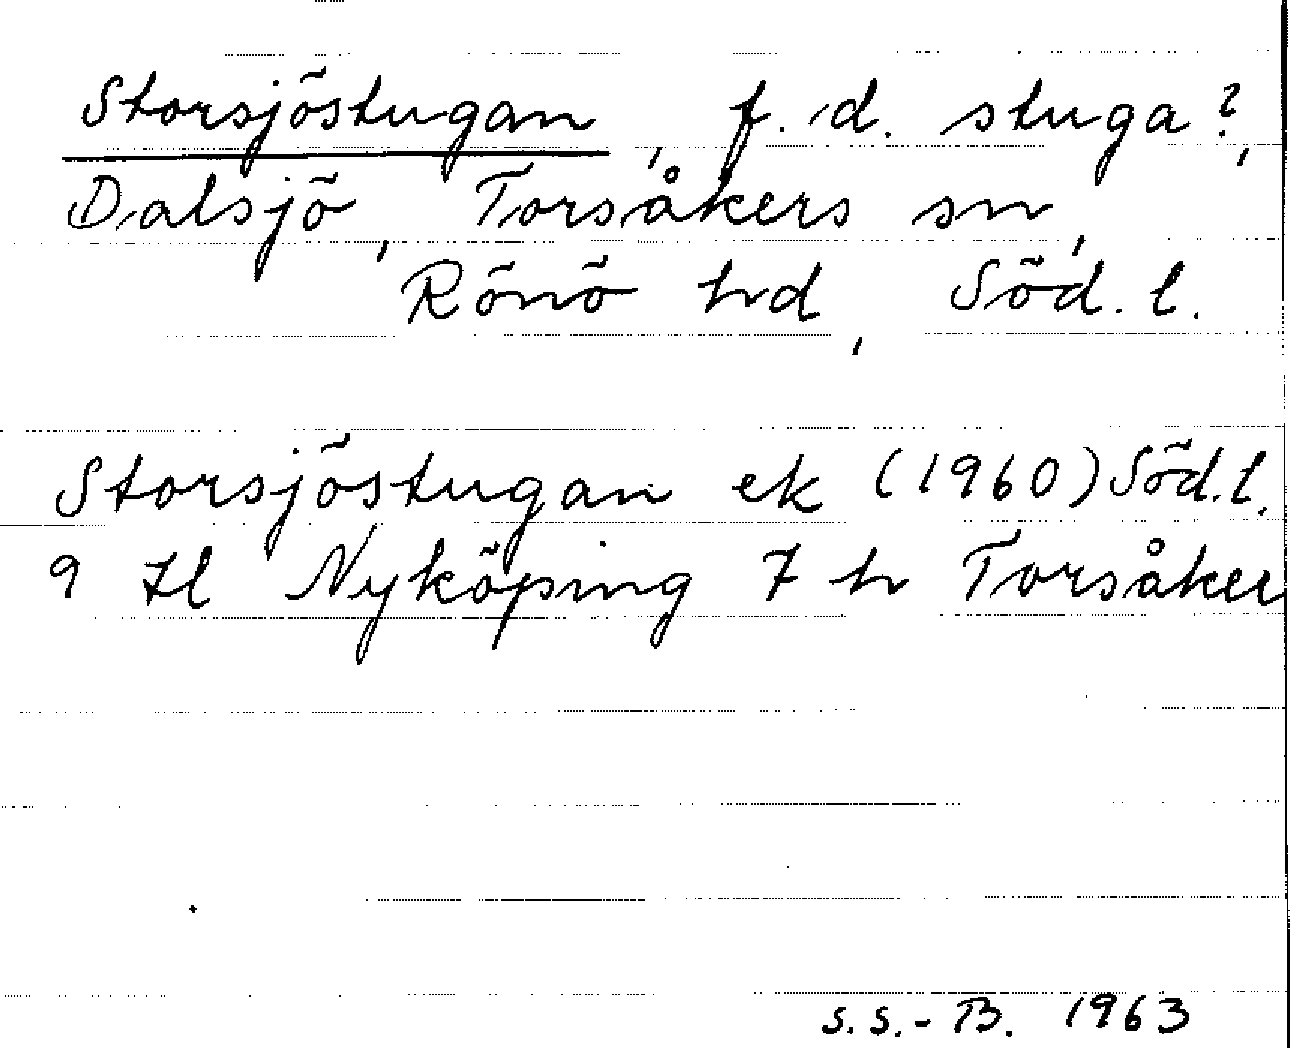 Storsjöstugan, f.d. stuga?,
Dalsjö, Torsåkers sn,
Rönö hd, Söd. l.
Storsjöstugan ek (1960) Söd. l.
9 Il Nyköping 7 h Torsåker
S.S.-B. 1963